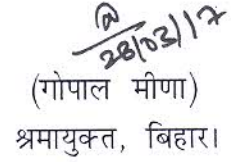 28/03/17
(गोपाल मीणा)
श्रमायुक्त, बिहार।